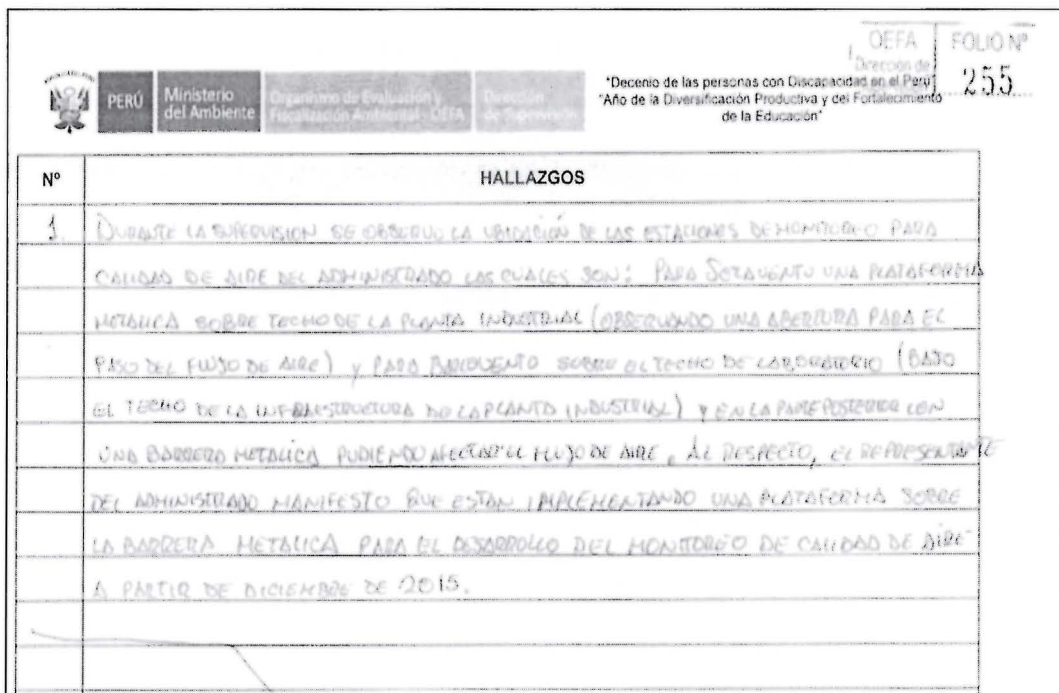 OEFA FOLIO Nº
Dirección de
255
PERÚ
Ministerio
del Ambiente
Organismo de Evaluación y
Fiscalización Ambiental - OEFA
Dirección
de Supervisión
"Decenio de las personas con Discapacidad en el Perú"
"Año de la Diversificación Productiva y del Fortalecimiento
de la Educación"
Nº HALLAZGOS
1. DURANTE LA SUPERVISION SE OBSERVO LA UBICACIÓN DE LAS ESTACIONES DE MONITOREO PARA
CALIDAD DE AIRE DEL ADMINISTRADO LAS CUALES SON: PARA SOTAVENTO UNA PLATAFORMA
METALICA SOBRE TECHO DE LA PLANTA INDUSTRIAL (OBSERVANDO UNA ABERTURA PARA EL
PASO DEL FLUJO DE AIRE) Y PARA BARLOVENTO SOBRE EL TECHO DE LABORATORIO (BAJO
EL TECHO DE LA INFRAESTRUCTURA DE LA PLANTA INDUSTRIAL) Y EN LA PARTE POSTERIOR CON
UNA BARRERA METALICA PUDIENDO AFECTAR EL FLUJO DE AIRE. AL RESPECTO, EL REPRESENTANTE
DEL ADMINISTRADO MANIFESTO QUE ESTAN IMPLEMENTANDO UNA PLATAFORMA SOBRE
LA BARRERA METALICA PARA EL DESARROLLO DEL MONITOREO DE CALIDAD DE AIRE
A PARTIR DE DICIEMBRE DE 2015.